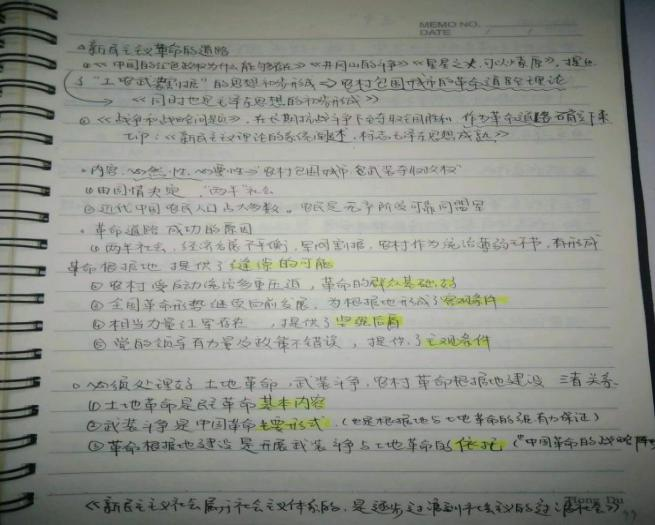 MEMO NO.
DATE
新民主主义革命的道路
①《中国的红色政权为什么能够存在》《井冈山的斗争》《星星之火,可以燎原》,提出
了"工农武装割据"的思想初步形成 => 农村包围城市的革命道路理论
《同时也是毛泽东思想的初步形成》
②《战争和战略问题》,在长期抗战斗争下夺取全国胜利,作为革命道路确立下来
tip:《新民主主义理论的系统阐述,标志毛泽东思想成熟》
·内容,必然性,必要性→"农村包围城市,武装夺取政权"
①由国情决定,"两半"社会
②近代中国农民人口占大多数。农民是无产阶级可靠同盟军
·革命道路成功的原因
①两半社会,经济发展不平衡,军阀割据,农村作为统治薄弱环节,有形成
革命根据地 提供了缝隙的可能
②农村受反动统治多重压迫,革命的群众基础好
③全国革命形势继续向前发展,为根据地形成了客观条件
④相当力量红军存在,提供了坚强后盾
⑤党的领导有力量及政策不错误,提供了主观条件
必须处理好 土地革命,武装斗争,农村革命根据地建设 三者关系.
①土地革命是民主革命基本内容
②武装斗争是中国革命主要形式.(也是根据地与土地革命的强有力保证)
③革命根据地建设是开展武装斗争与土地革命的依托("中国革命的战略阵
《新民主主义社会属于社会主义体系的,是逐步过渡到社会主义的过渡社会》